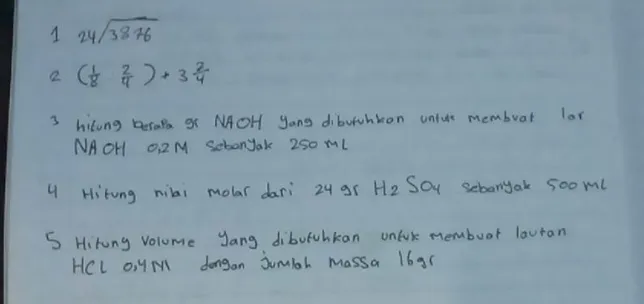 1 24/3876
2 (1/8 2/4) + 3 2/4
3 hitung berapa gr NAOH yang dibutuhkan untuk membuat lar
NAOH 0,2 M sebanyak 250 mL
4 Hitung nilai molar dari 24 gr H2SO4 sebanyak 500 mL
5 Hitung Volume yang dibutuhkan untuk membuat lautan
HCL 0,4 M dengan jumlah massa 16gr